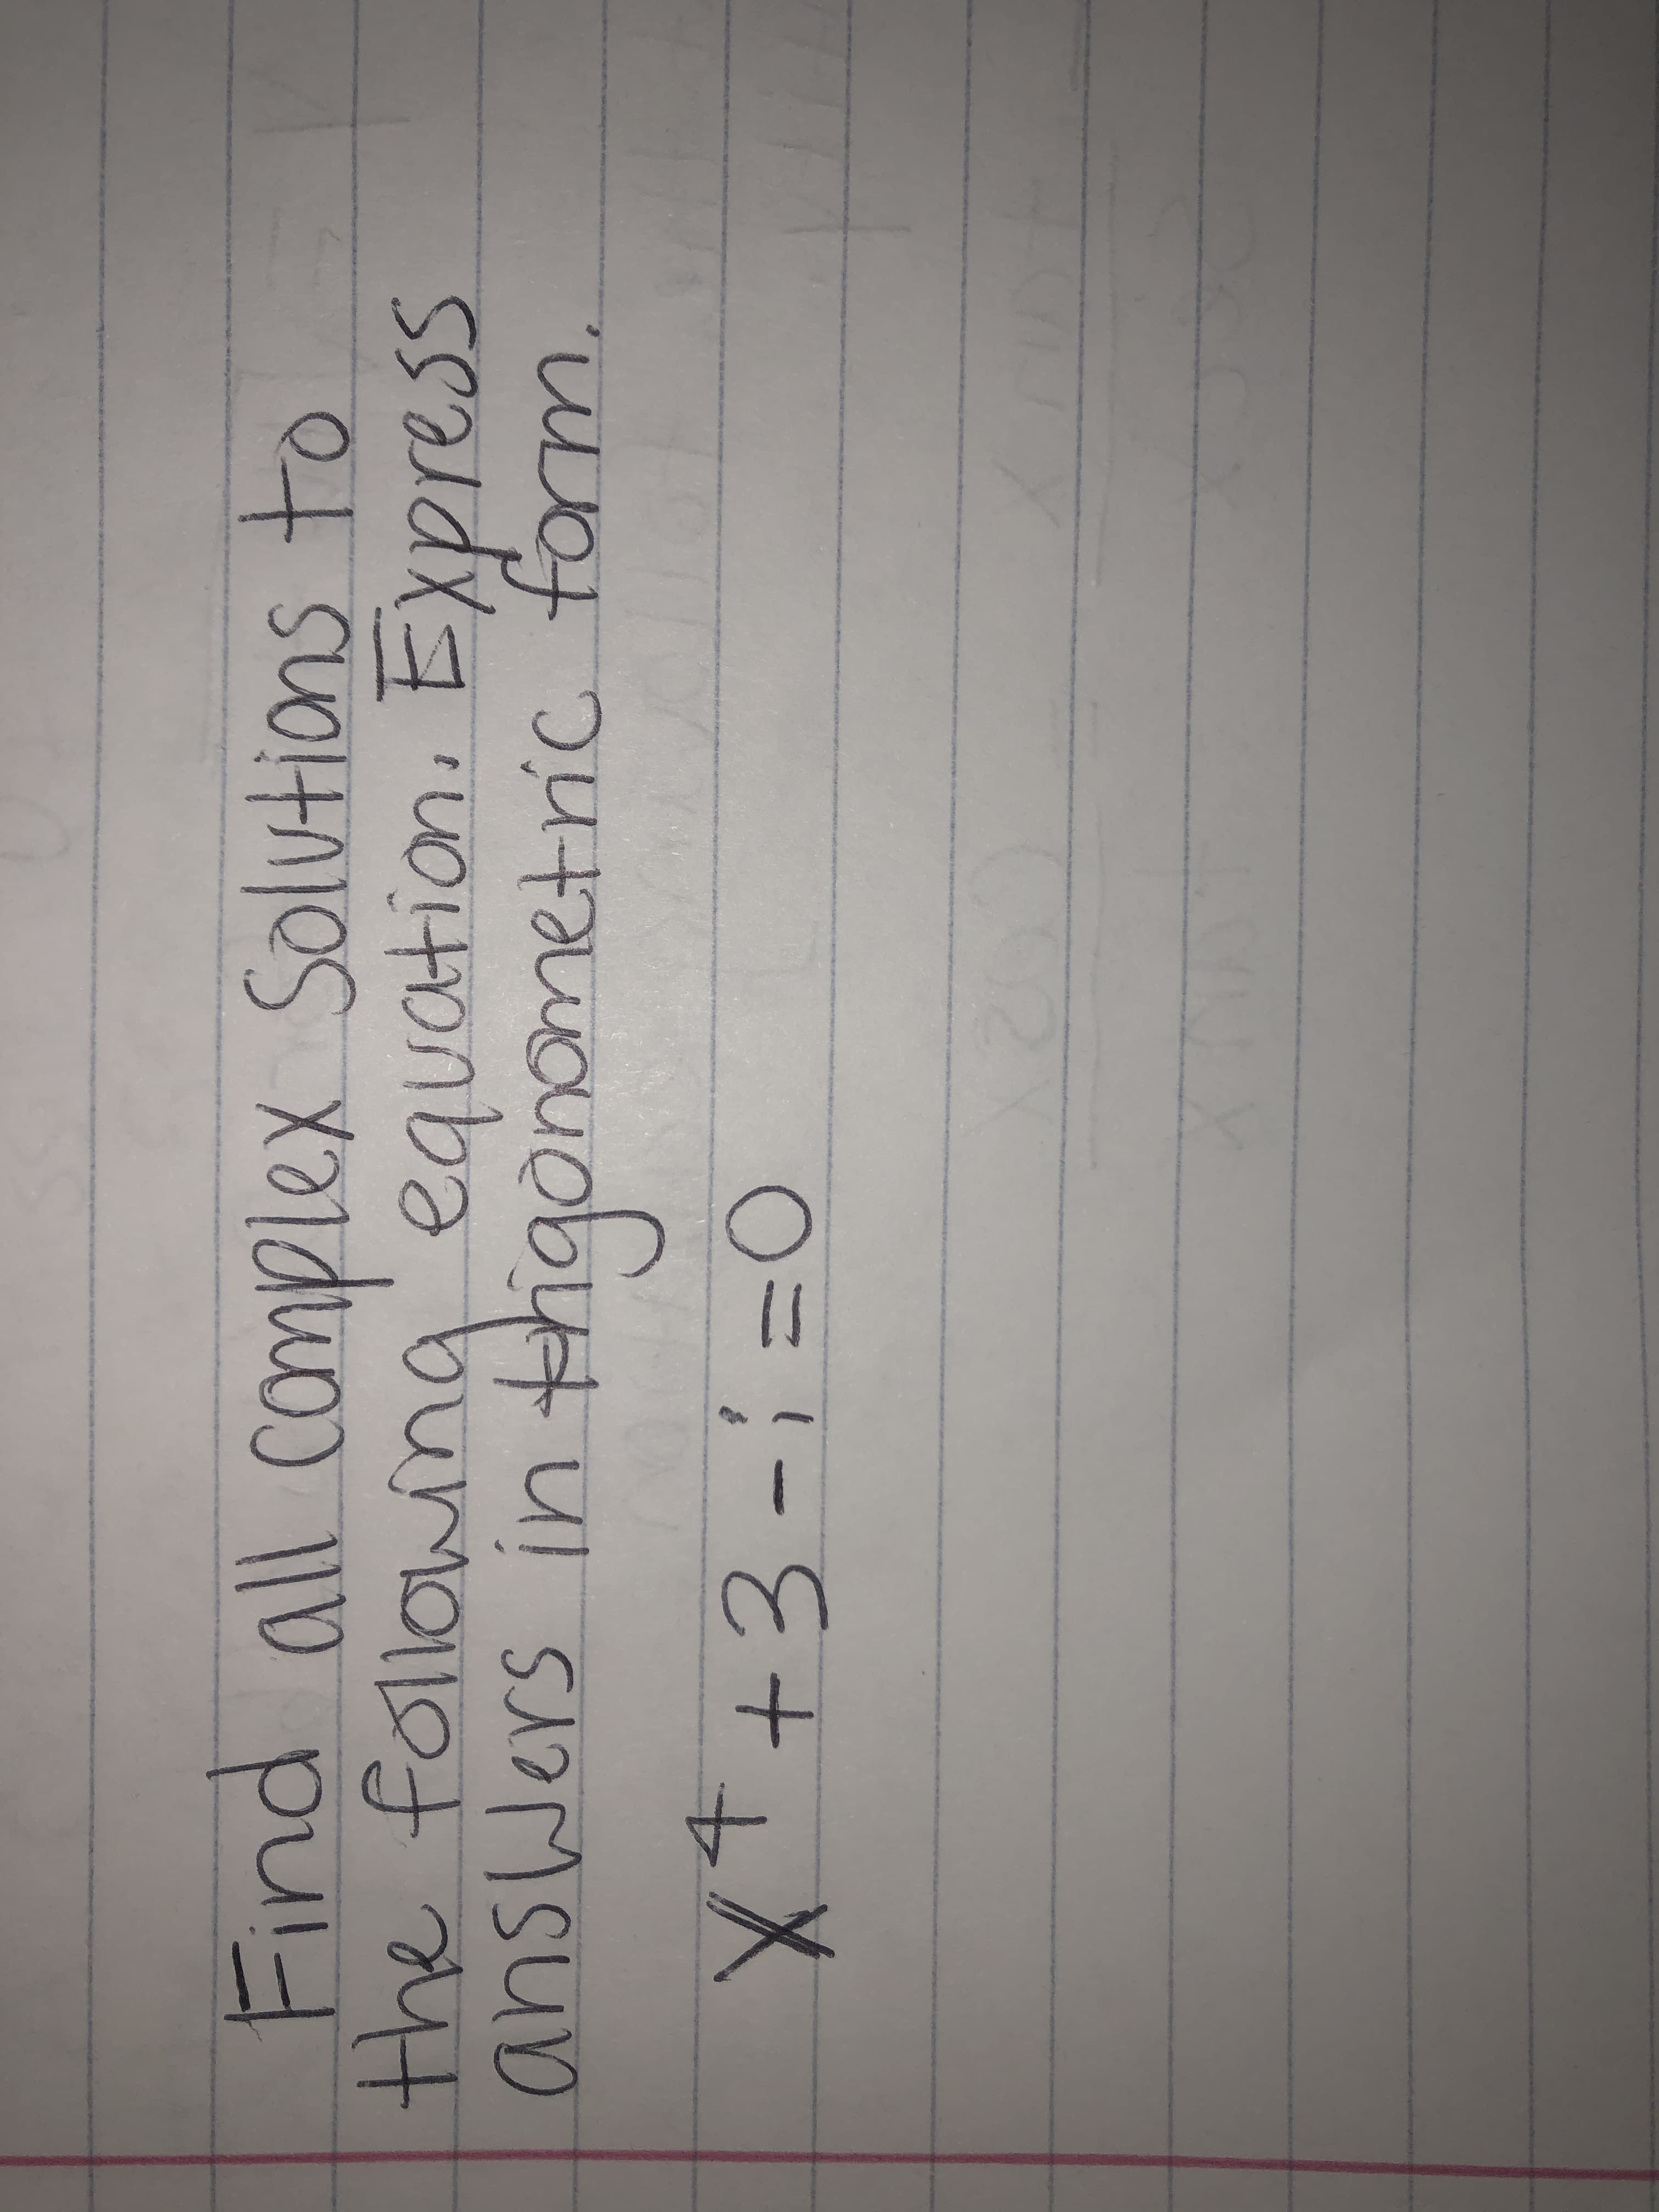 Find all complex solutions to
the following equation. Express
answers in trigonometric form.
x⁴ + 3 - i = 0